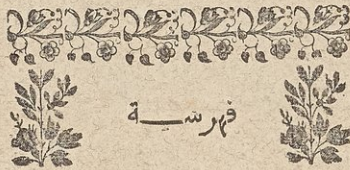 فهرسة